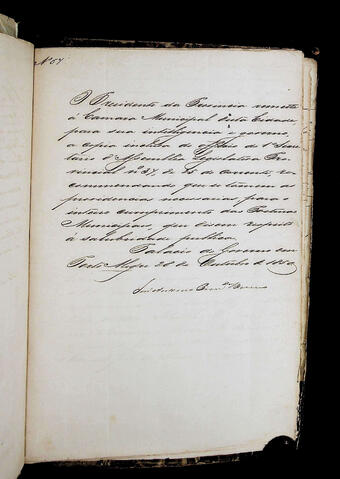 Nº 57
O Presidente da Provincia remette
á Camara Municipal desta Cidade
para sua intelligencia e governo,
a copia inclusa do Officio do 1º Secre
tario d'Assemblea Legislativa Pro
vincial nº 37 de do corrente, re
commendando que se tomem as
providencias necessarias para o
inteiro cumprimento das Posturas
Municipaes, que dizem respeito
á salubridade publica.
Palacio do Governo em
Porto Alegre 28 de Outubro de 1850